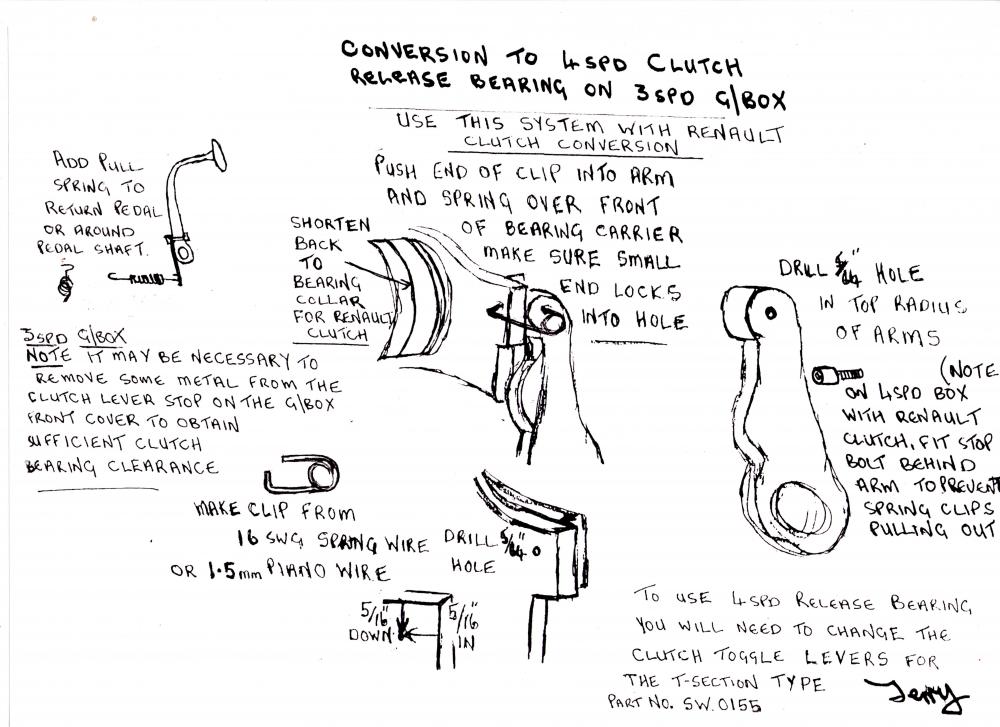 CONVERSION TO 4SPD CLUTCH
RELEASE BEARING ON 3SPD G/BOX
USE THIS SYSTEM WITH RENAULT
CLUTCH CONVERSION
PUSH END OF CLIP INTO ARM
AND SPRING OVER FRONT
OF BEARING CARRIER
MAKE SURE SMALL
END LOCKS
INTO HOLE
ADD PULL
SPRING TO
RETURN PEDAL
OR AROUND
PEDAL SHAFT.
SHORTEN
BACK
TO
BEARING
COLLAR
FOR RENAULT
CLUTCH
DRILL 5/64" HOLE
IN TOP RADIUS
OF ARMS
(NOTE
ON 4SPD BOX
WITH RENAULT
CLUTCH, FIT STOP
BOLT BEHIND
ARM TO PREVENT
SPRING CLIPS
PULLING OUT
3SPD G/BOX
NOTE IT MAY BE NECESSARY TO
REMOVE SOME METAL FROM THE
CLUTCH LEVER STOP ON THE G/BOX
FRONT COVER TO OBTAIN
SUFFICIENT CLUTCH
BEARING CLEARANCE
MAKE CLIP FROM
16 SWG SPRING WIRE
OR 1.5mm PIANO WIRE
DRILL 5/64"
HOLE
5/16"
DOWN
5/16"
IN
TO USE 4SPD RELEASE BEARING
YOU WILL NEED TO CHANGE THE
CLUTCH TOGGLE LEVERS FOR
THE T-SECTION TYPE
PART NO. SW.0155
Terry